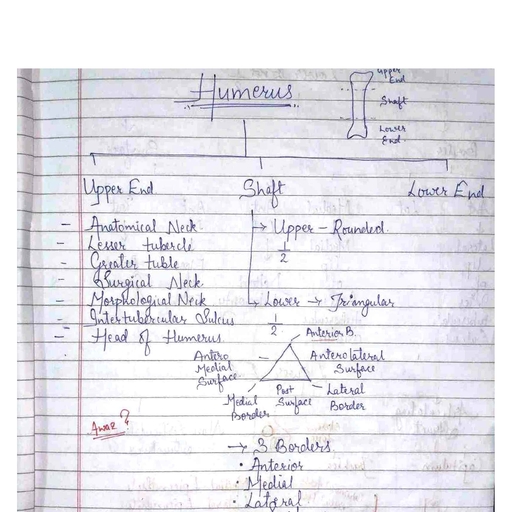 Humerus
Upper
End
Shaft
Lower
End
Upper End
Shaft
Lower End
- Anatomical Neck
- Lesser tubercle
- Greater tuble
- Surgical Neck
- Morphological Neck
- Intertubercular Sulcus
- Head of Humerus
→ Upper - Rounded
1/2
→ Lower → Triangular
1/2
Anterior B.
Antero
Medial
Surface
Anterolateral
Surface
Medial
Border
Post
Surface
Lateral
Border
→ 3 Borders
• Anterior
• Medial
• Lateral